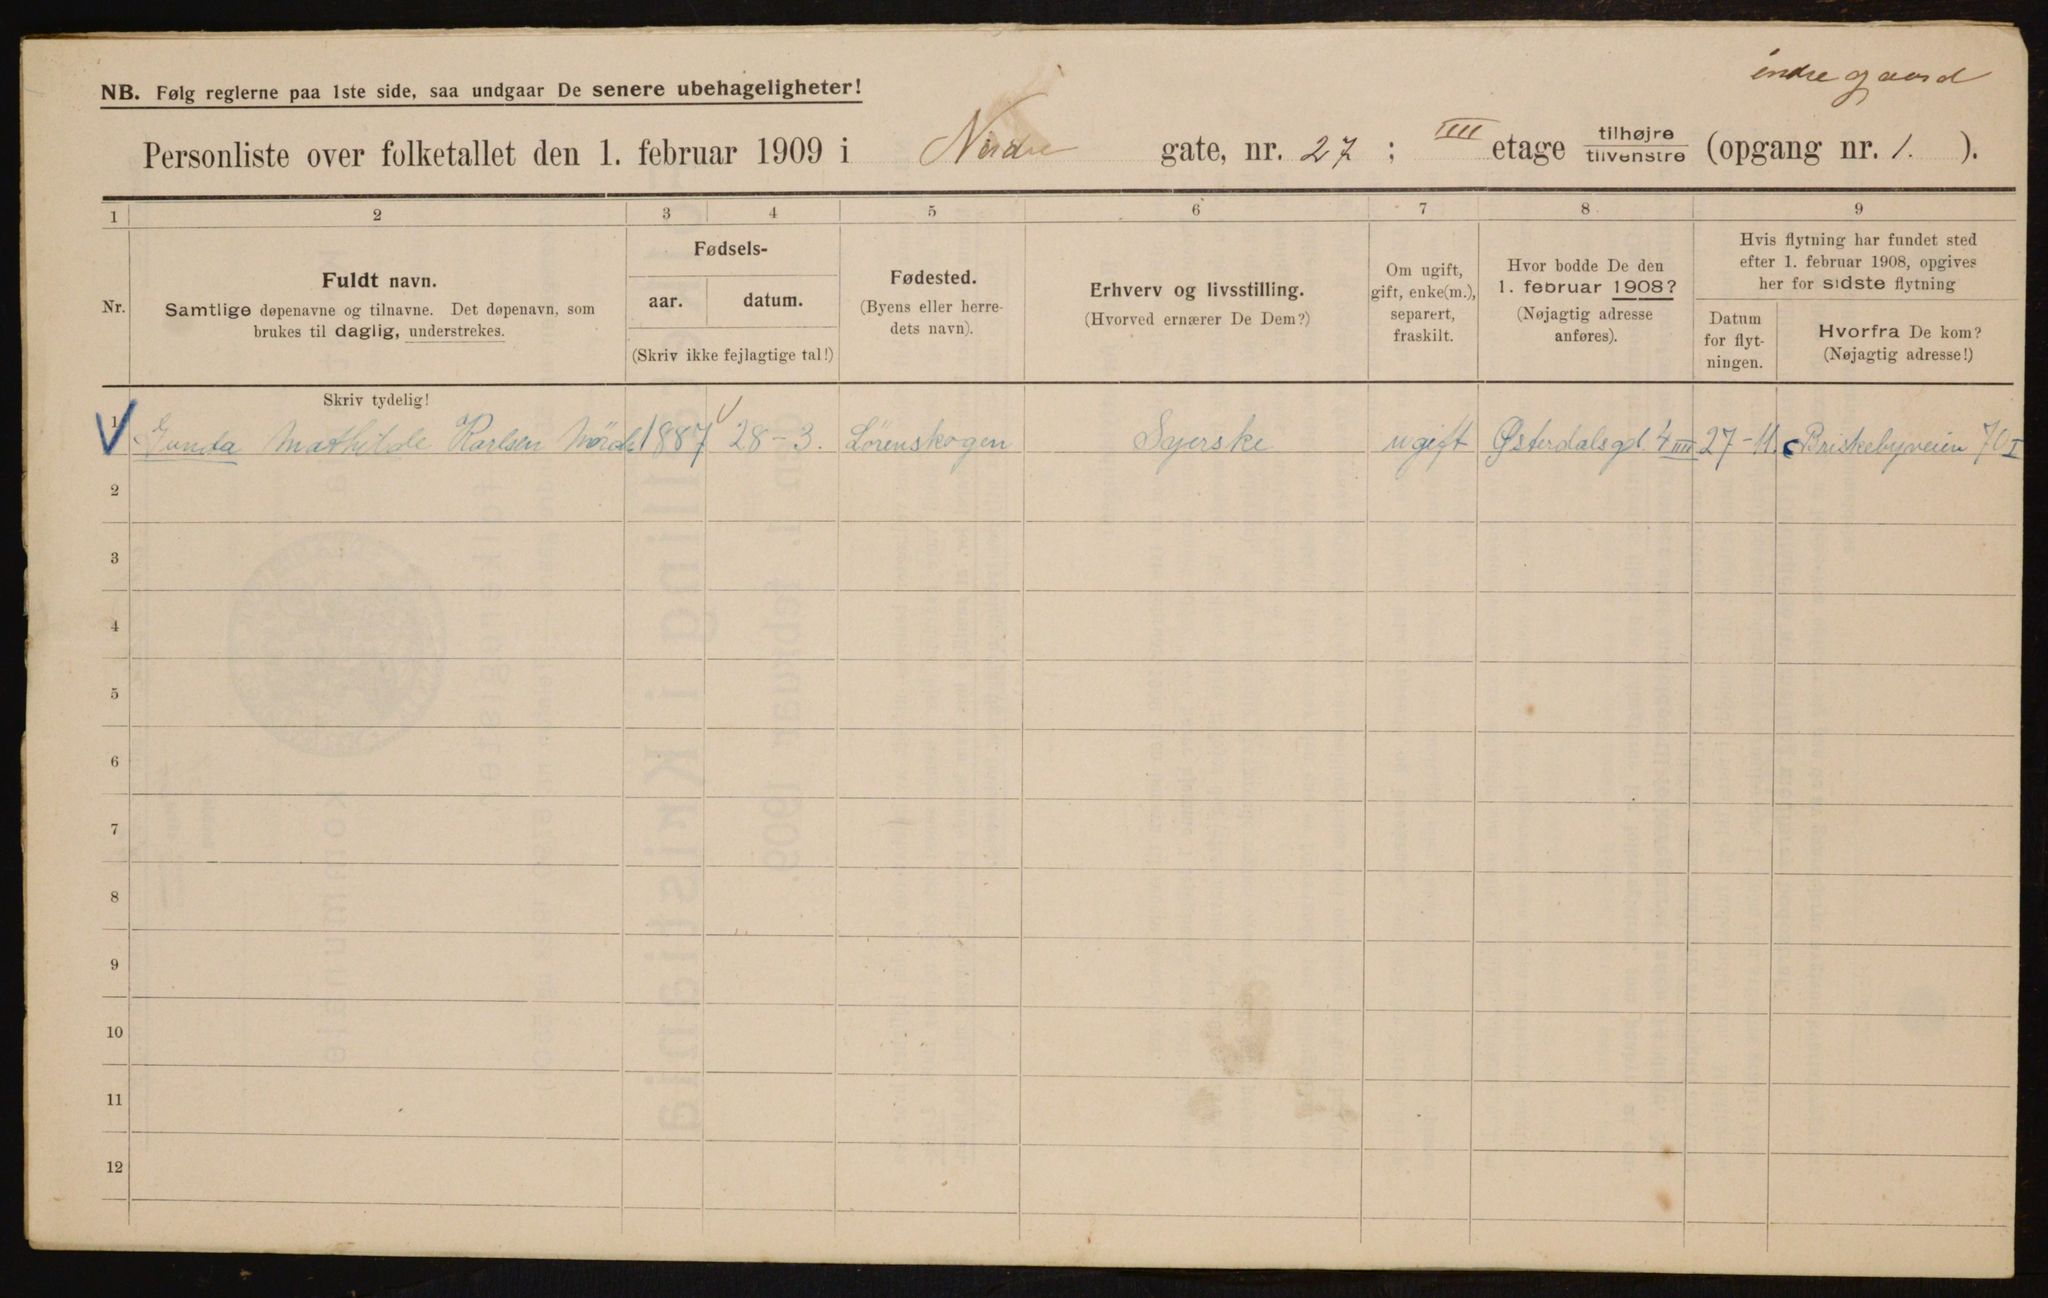 indre gaard
NB. Følg reglerne paa 1ste side, saa undgaar De senere ubehageligheter!
Personliste over folketallet den 1. februar 1909 i Nordre gate, nr. 27 ; IIII etage tilhøjre/tilvenstre (opgang nr. 1. ).
1 2 3 4 5 6 7 8 9
Nr.
Fuldt navn.
Samtlige døpenavne og tilnavne. Det døpenavn, som
brukes til daglig, understrekes.
Fødsels-
aar. datum.
(Skriv ikke fejlagtige tal!)
Fødested.
(Byens eller herre-
dets navn).
Erhverv og livsstilling.
(Hvorved ernærer De Dem?)
Om ugift,
gift, enke(m.),
separert,
fraskilt.
Hvor bodde De den
1. februar 1908?
(Nøjagtig adresse
anføres).
Hvis flytning har fundet sted
efter 1. februar 1908, opgives
her for sidste flytning
Datum
for flyt-
ningen.
Hvorfra De kom?
(Nøjagtig adresse!)
Skriv tydelig!
1 Gunda Mathilde Karlsen 1887 28-3. Lørenskogen Syerske ugift Østerdalsgd. 4 IIII 27-11. Briskebyveien 70 I
2
3
4
5
6
7
8
9
10
11
12